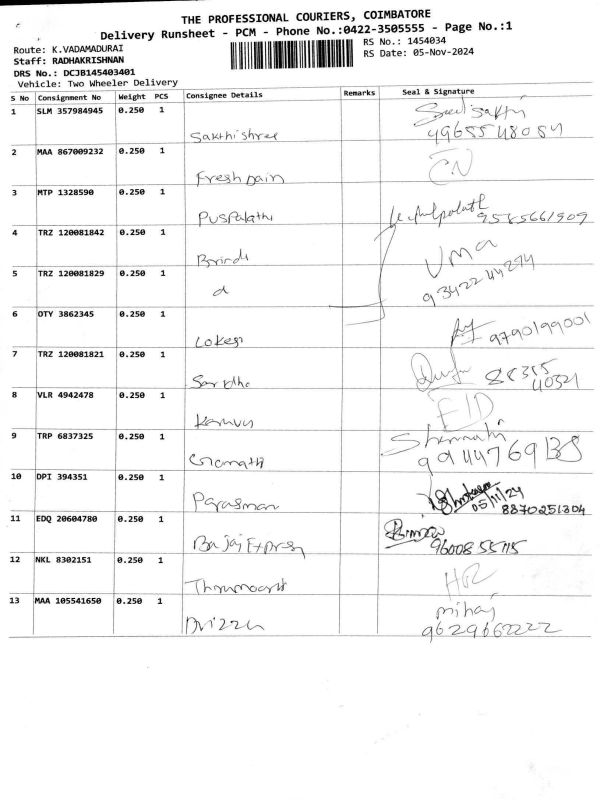 THE PROFESSIONAL COURIERS, COIMBATORE
Delivery Runsheet - PCM - Phone No.:0422-3505555 - Page No.:1
Route: K.VADAMADURAI
RS No.: 1454034
Staff: RADHAKRISHNAN
RS Date: 05-Nov-2024
DRS No.: DCJB145403401
Vehicle: Two Wheeler Delivery
S No Consignment No Weight PCS Consignee Details Remarks Seal & Signature
1 SLM 357984945 0.250 1 Sakthishree
2 MAA 867009232 0.250 1 Freshpain
3 MTP 1328590 0.250 1 Puspalathi 9585661909
4 TRZ 120081842 0.250 1 UMA
5 TRZ 120081829 0.250 1 d 9342244294
6 OTY 3862345 0.250 1 Lokesh 9790199001
7 TRZ 120081821 0.250 1 88385
40321
8 VLR 4942478 0.250 1
9 TRP 6837325 0.250 1 Gomathi
10 DPI 394351 0.250 1 Parasman 05/11/24
8870251304
11 EDQ 20604780 0.250 1 Bajaj Express
12 NKL 8302151 0.250 1
13 MAA 105541650 0.250 1 mihaj
9629662222